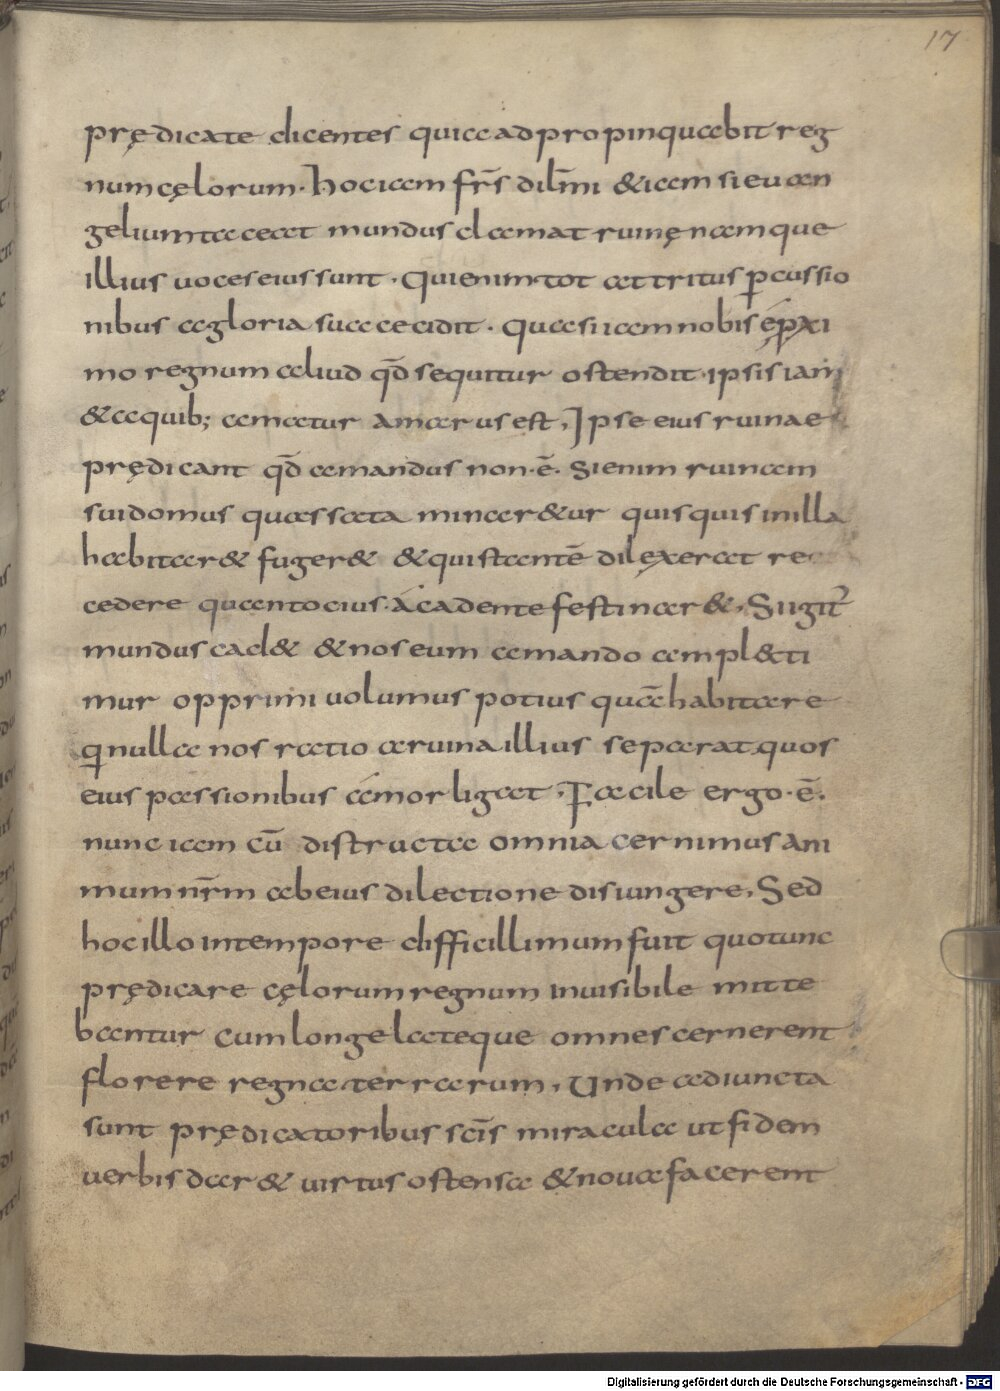 17
prędicate dicentes quia adpropinquabit reg
num cęlorum. hoc iam fr̄s dil̄mi & iam si euan
gelium taceat mundus clamat ruinę namque
illius uoces eius sunt. Qui enim tot attritus ꝑcussio
nibus a gloria sua cecidit. quasi iam nobis e ꝓxi
mo regnum aliud qđ sequitur ostendit. ipsis iam
& a quib; amatur amarus est, Ipse eius ruinae
prędicant qđ amandus non .ē. Si enim ruinam
sui domus quassata minar&ur quisquis in illa
habitar& fuger& & qui stantē dilexerat re
cedere quantocius. a cadente festinar&, Si igit̄
mundus cad& & nos eum amando amplecti
mur opprimi uolumus potius quā habitare
q nulla nos ratio a ruina illius separat. quos
eius passionibus amor ligat, Facile ergo .ē.
nunc iam cū distructa omnia cernimus ani
mum nr̄m ab eius dilectione disiungere, Sed
hoc illo in tempore difficillimum fuit quo tunc
prędicare cęlorum regnum inuisibile mitte
bantur cum longe lateque omnes cernerent
florere regna terrarum, Unde adiuncta
sunt prędicatoribus scīs miracula ut fidem
uerbis dar& uirtus ostensa & noua facerent
Digitalisierung gefördert durch die Deutsche Forschungsgemeinschaft - DFG